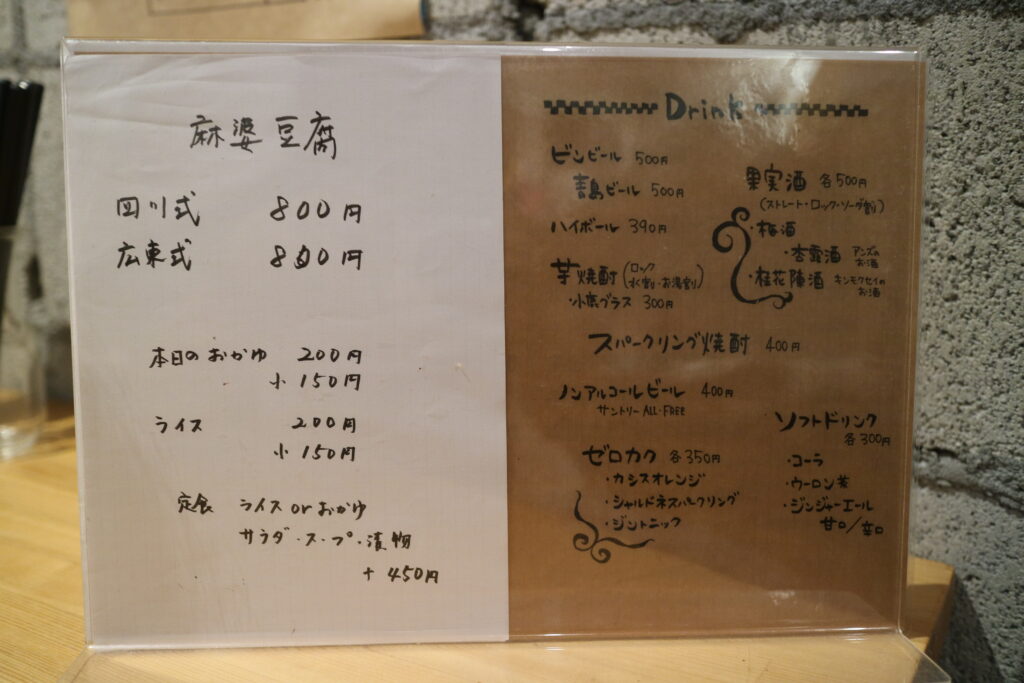 麻婆豆腐
四川式 800円
広東式 800円
本日のおかゆ 200円
小 150円
ライス 200円
小 150円
定食 ライス or おかゆ
サラダ・スープ・漬物
+ 450円
Drink
ビンビール 500円
青島ビール 500円
ハイボール 390円
芋焼酎(ロック 水割り・お湯割り)
・小鹿グラス 300円
果実酒 各500円
(ストレート・ロック・ソーダ割)
・梅酒
・杏露酒 アンズのお酒
・桂花陳酒 キンモクセイのお酒
スパークリング焼酎 400円
ノンアルコールビール 400円
サントリー ALL-FREE
ゼロカク 各350円
・カシスオレンジ
・シャルドネスパークリング
・ジントニック
ソフトドリンク
各300円
・コーラ
・ウーロン茶
・ジンジャーエール
甘口/辛口